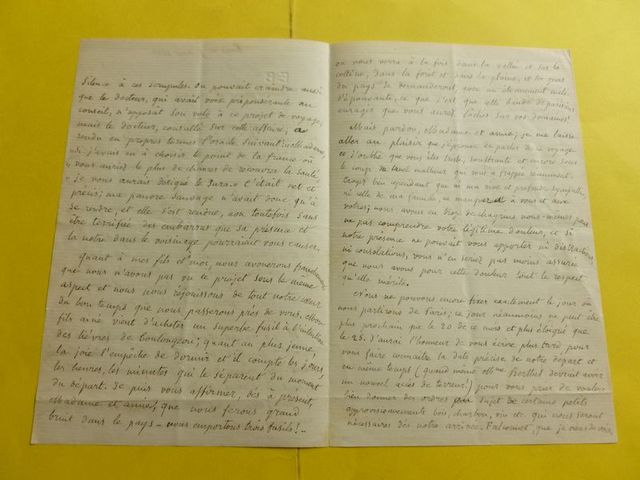 silence à ces scrupules. On pouvait craindre aussi
que le docteur, qui avait voix prépondérante au
conseil, n'opposât son veto à ce projet de voyage,
mais le docteur, consulté sur cette affaire, a
rendu en propres termes l'oracle suivant:
j'avais eu à choisir le point de la France où
vous auriez le plus de chances de recouvrer la santé
Je vous aurais désigné le Jura. C'était net et
précis; ma pauvre sauvage n'avait donc qu'à
se rendre, et elle s'est rendue, non toutefois sans
être terrifiée des embarras que sa présence et
la nôtre dans le voisinage pourraient vous causer.
Quant à mes fils et moi, nous avouerons franchement
que nous n'avons pas vu ce projet sous le même
aspect et nous nous réjouissons de tout notre cœur
du bon temps que nous passerons près de vous. Mon
fils aîné vient d'acheter un superbe fusil à l'intention
des lièvres de ; quant au plus jeune,
la joie l'empêche de dormir et il compte les jours,
les heures, les minutes qui le séparent du moment
du départ. Je puis vous affirmer, dès à présent,
Madame et amie, que nous ferons grand
bruit dans le pays – nous emportons trois fusils! –
on nous verra à la fois dans la vallée et sur la
colline, dans la forêt et dans la plaine, et les gens
du pays se demanderont, avec un étonnement mêlé
d'épouvante, ce que c'est que cette bande de parisiens
enragés que vous aurez lâchés sur vos domaines!
Mais pardon, Madame et amie, je me laisse
aller au plaisir que j'éprouve de parler de ce voyage
et j'oublie que vous êtes triste, souffrante et encore sous
le coup du malheur qui vous a frappée récemment.
Croyez bien cependant que ni ma vive et profonde sympathie
ni celle de ma famille, ne manquera à vous et aux
vôtres; nous avons eu trop de chagrins nous-mêmes pour
ne pas comprendre votre légitime douleur, et si
notre présence ne pouvait vous apporter ni distractions,
ni consolations, vous n'en seriez pas moins assurée
que nous avons pour cette douleur tout le respect
qu'elle mérite.
Nous ne pouvons encore fixer exactement le jour où
nous partirons de Paris; ce jour néanmoins ne peut être
plus prochain que le 20 de ce mois et plus éloigné que
le 25. J'aurai l'honneur de vous écrire plus tard pour
vous faire connaître la date précise de notre départ et
en même temps (quand même Mme Berthet devrait avoir
un nouvel accès de terreur!) pour vous prier de vouloir
bien donner des ordres au sujet de certains petits
approvisionnements bois, charbon, vin etc. qui nous seront
nécessaires dès notre arrivée. , que je viens de voir,